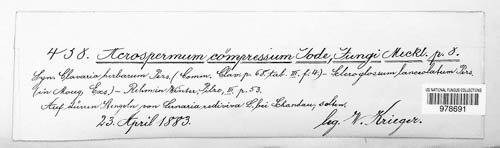 438. Acrospermum compressum Tode, Fungi Meckl. p. 8.
Syn. Clavaria herbarum Pers. (Comm. Clav. p. 68. tab. III. f. 4). Scleroglossum lanceolatum Pers.
(in Moug. Exs.) – Rehm in Winter, Pilze, III p. 53.
Auf dürren Stengeln von Lunaria rediviva L. bei Schandau, selten.
23. April 1883.
leg. W. Krieger.
US NATIONAL FUNGUS COLLECTIONS
978691